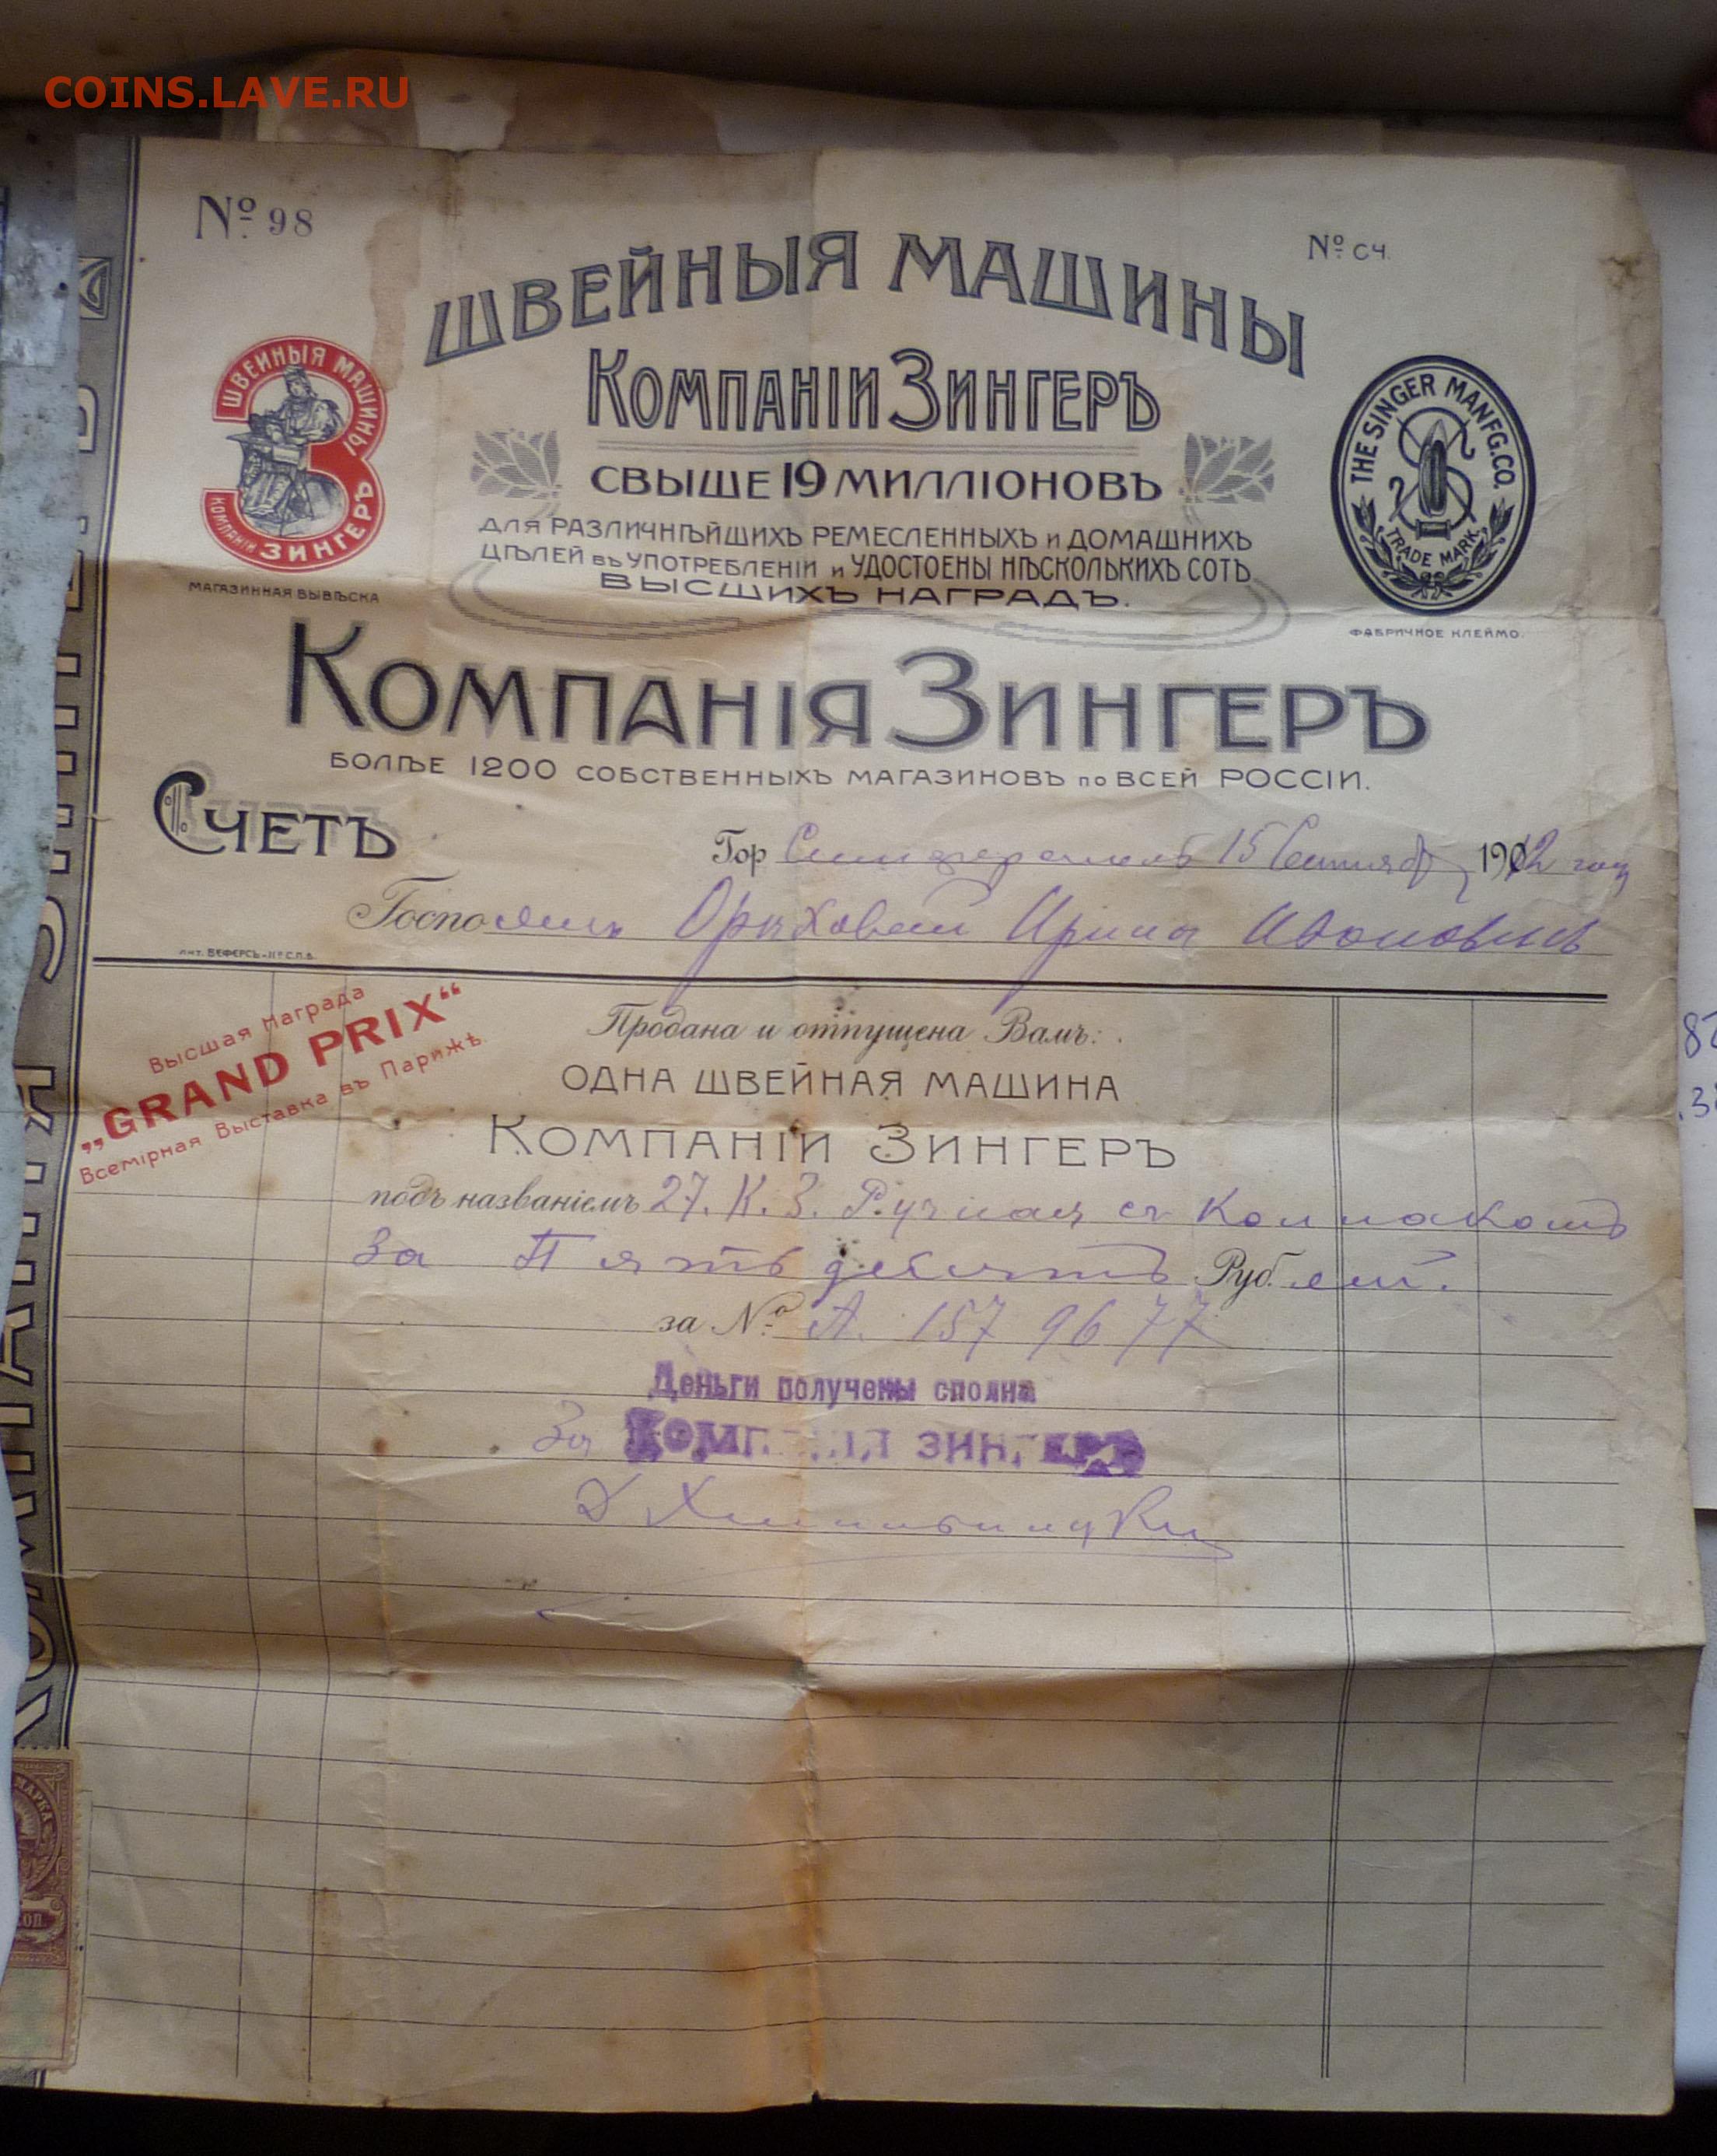 COINS.LAVE.RU
№ 98
№ СЧ.
ШВЕЙНЫЯ МАШИНЫ
КОМПАНІИ ЗИНГЕРЪ
СВЫШЕ 19 МИЛЛІОНОВЪ
ДЛЯ РАЗЛИЧНѢЙШИХЪ РЕМЕСЛЕННЫХЪ И ДОМАШНИХЪ
ЦѢЛЕЙ ВЪ УПОТРЕБЛЕНІИ И УДОСТОЕНЫ НѢСКОЛЬКИХЪ СОТЪ
ВЫСШИХЪ НАГРАДЪ.
ШВЕЙНЫЯ МАШИНЫ
КОМПАНІИ ЗИНГЕРЪ
МАГАЗИННАЯ ВЫВѢСКА
THE SINGER MANFG. CO.
TRADE MARK.
ФАБРИЧНОЕ КЛЕЙМО.
КОМПАНІЯ ЗИНГЕРЪ
БОЛѢЕ 1200 СОБСТВЕННЫХЪ МАГАЗИНОВЪ ПО ВСЕЙ РОССІИ.
СЧЕТЪ
Гор Симферополь 15 Сентября 1912 года
Господинъ Ирина
Высшая Награда
„GRAND PRIX“
Всемірная Выставка въ Парижѣ
Продана и отпущена Вамъ:
ОДНА ШВЕЙНАЯ МАШИНА
КОМПАНІИ ЗИНГЕРЪ
подъ названіемъ 27. К. 3. Ручная съ Колпакомъ
за Пятьдесятъ Рублей.
за № А. 1579677
Деньги получены сполна
За КОМПАНІЯ ЗИНГЕРЪ
МАРКА
КОП.
КОМПАНІЯ ЗИНГЕРЪ